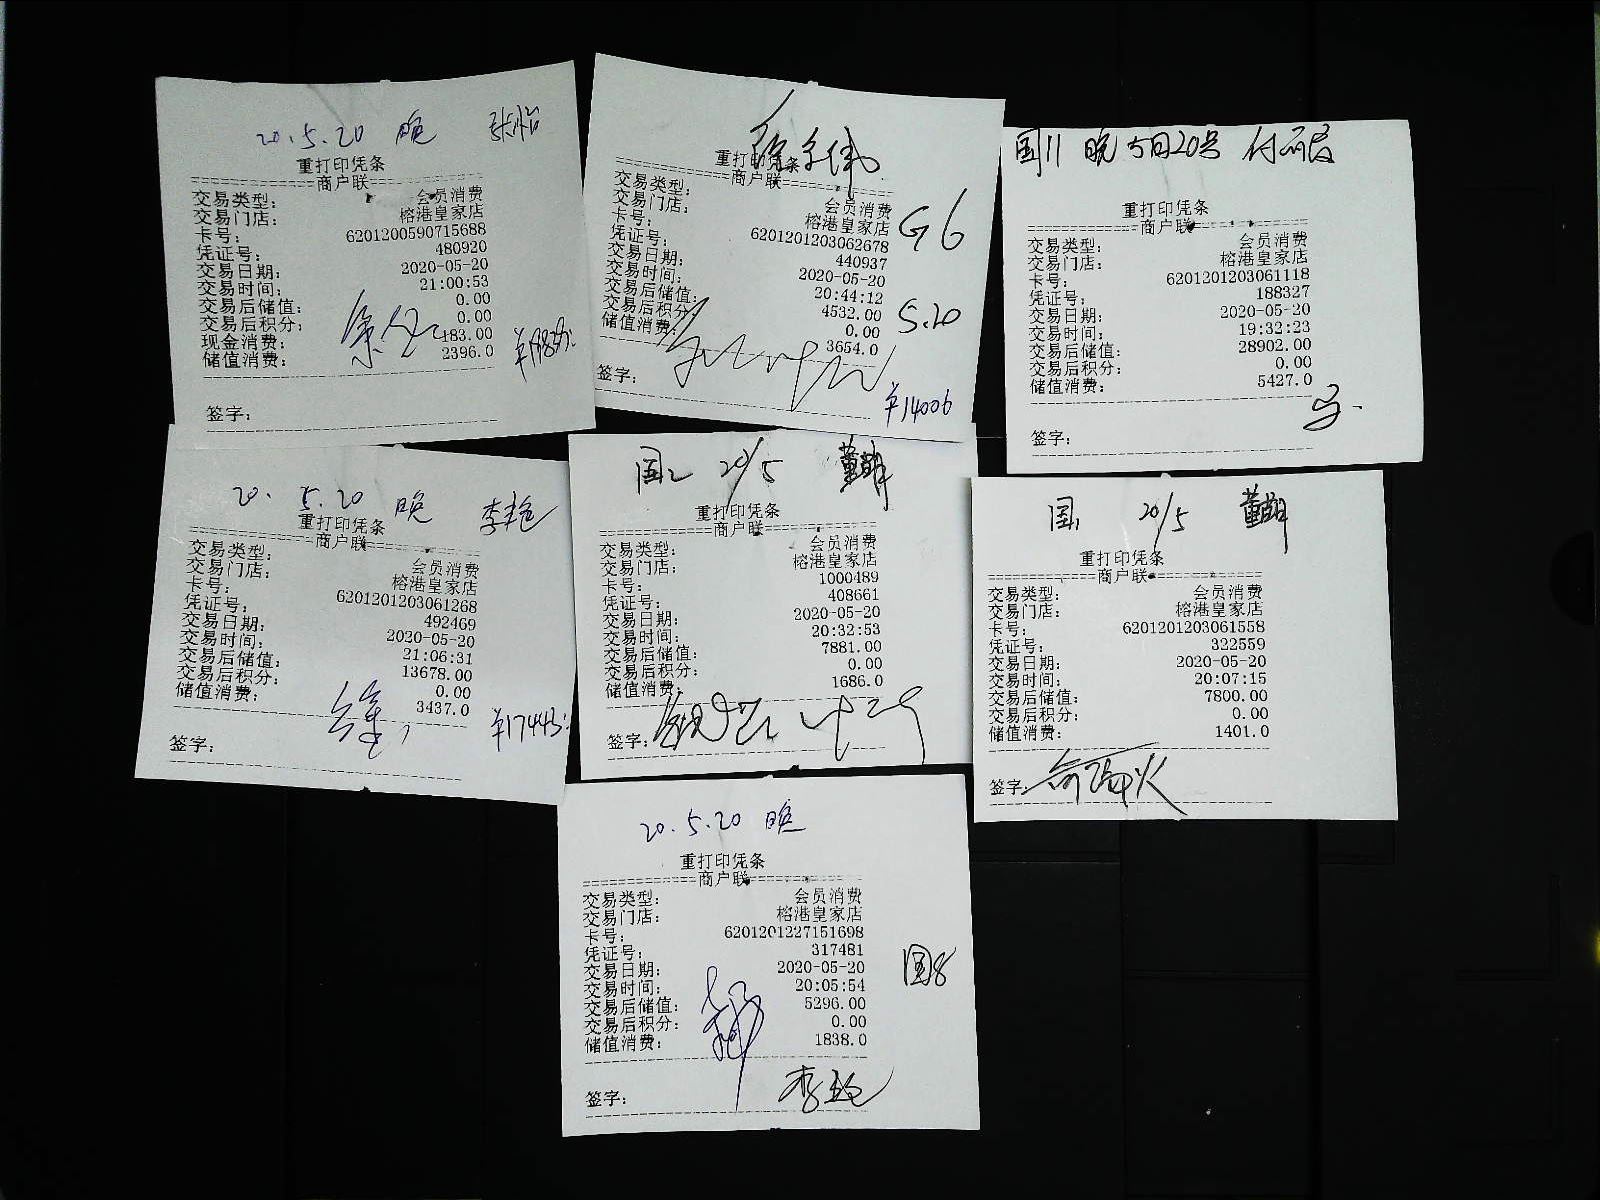 20.5.20 晚 张怡
重打印凭条
============商户联============
交易类型： 会员消费
交易门店： 榕港皇家店
卡号： 6201200590715688
凭证号： 480920
交易日期： 2020-05-20
交易时间： 21:00:53
交易后储值： 0.00
交易后积分： 0.00
现金消费： 183.00
储值消费： 2396.0
签字：
重打印凭条
============商户联============
交易类型： 会员消费
交易门店： 榕港皇家店
卡号： 6201201203062678
凭证号： 440937
交易日期： 2020-05-20
交易时间： 20:44:12
交易后储值： 4532.00
交易后积分： 0.00
储值消费： 3654.0
G6
5.20
签字：
¥14006
国11 晚 5月20号
重打印凭条
============商户联============
交易类型： 会员消费
交易门店： 榕港皇家店
卡号： 6201201203061118
凭证号： 188327
交易日期： 2020-05-20
交易时间： 19:32:23
交易后储值： 28902.00
交易后积分： 0.00
储值消费： 5427.0
签字：
20.5.20 晚 李艳
重打印凭条
============商户联============
交易类型： 会员消费
交易门店： 榕港皇家店
卡号： 6201201203061268
凭证号： 492469
交易日期： 2020-05-20
交易时间： 21:06:31
交易后储值： 13678.00
交易后积分： 0.00
储值消费： 3437.0
¥17443
签字：
国2 20/5 董萌
重打印凭条
============商户联============
交易类型： 会员消费
交易门店： 榕港皇家店
卡号： 1000489
凭证号： 408661
交易日期： 2020-05-20
交易时间： 20:32:53
交易后储值： 7881.00
交易后积分： 0.00
储值消费： 1686.0
签字：
国1 20/5 董萌
重打印凭条
============商户联============
交易类型： 会员消费
交易门店： 榕港皇家店
卡号： 6201201203061558
凭证号： 322559
交易日期： 2020-05-20
交易时间： 20:07:15
交易后储值： 7800.00
交易后积分： 0.00
储值消费： 1401.0
签字：
20.5.20 晚
重打印凭条
============商户联============
交易类型： 会员消费
交易门店： 榕港皇家店
卡号： 6201201227151698
凭证号： 317481
交易日期： 2020-05-20
交易时间： 20:05:54
交易后储值： 5296.00
交易后积分： 0.00
储值消费： 1838.0
国8
签字： 李艳